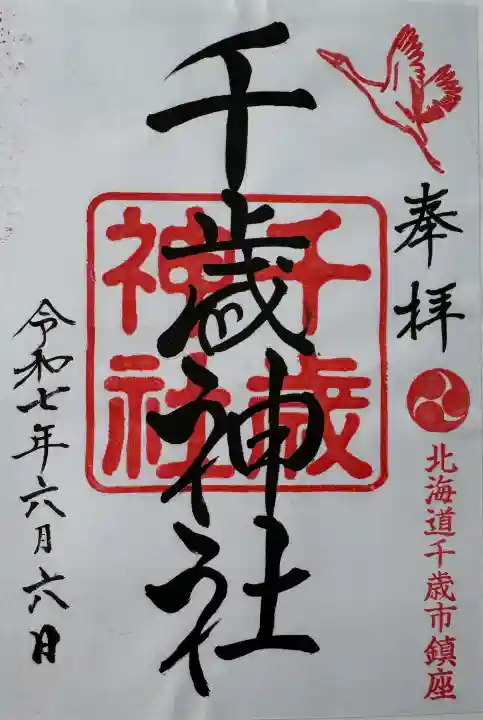 奉拝
北海道千歳市鎮座
千歳神社
千歳
神社
令和七年六月六日